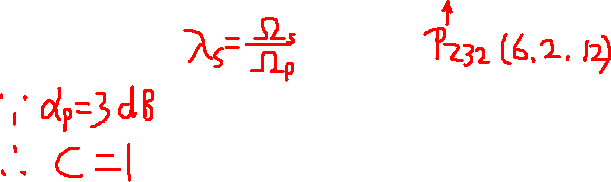 λs=Ωs/Ωp
↑
P232 (6.2.12)
∵ αp=3dB
∴ C=1